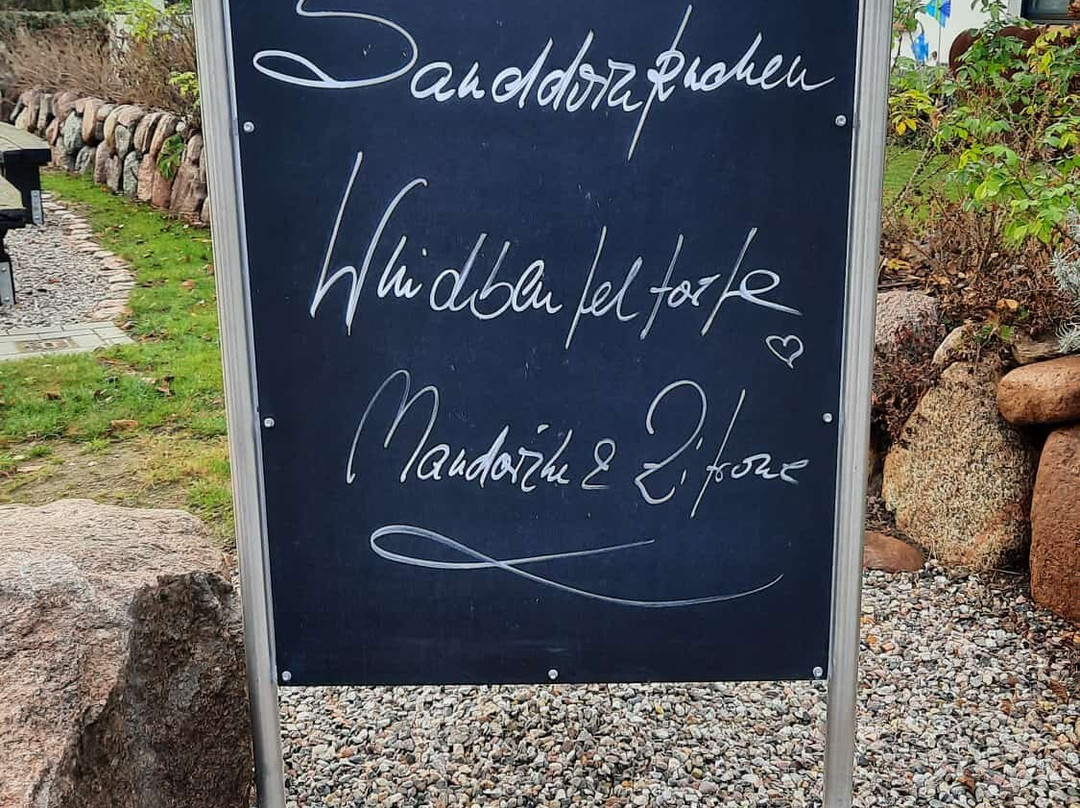 Sanddornkuchen
Windbeuteltorte
Mandarine & Zitrone